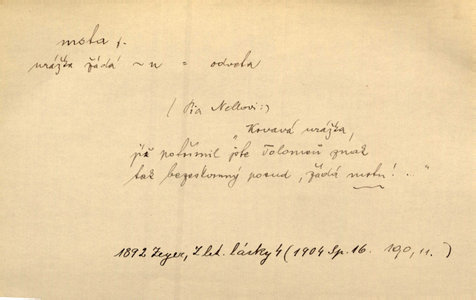 msta f.
urážka žádá ~u = odveta
(Pia Nellovi:)
„Krvavá urážka,
již potřísnil jste Tolomeů znak
tak bezeskvrnný posud, žádá mstu! ..."
1892 Zeyer, Z let. lásky 4 (1904 Sp. 16. 190, 11.)